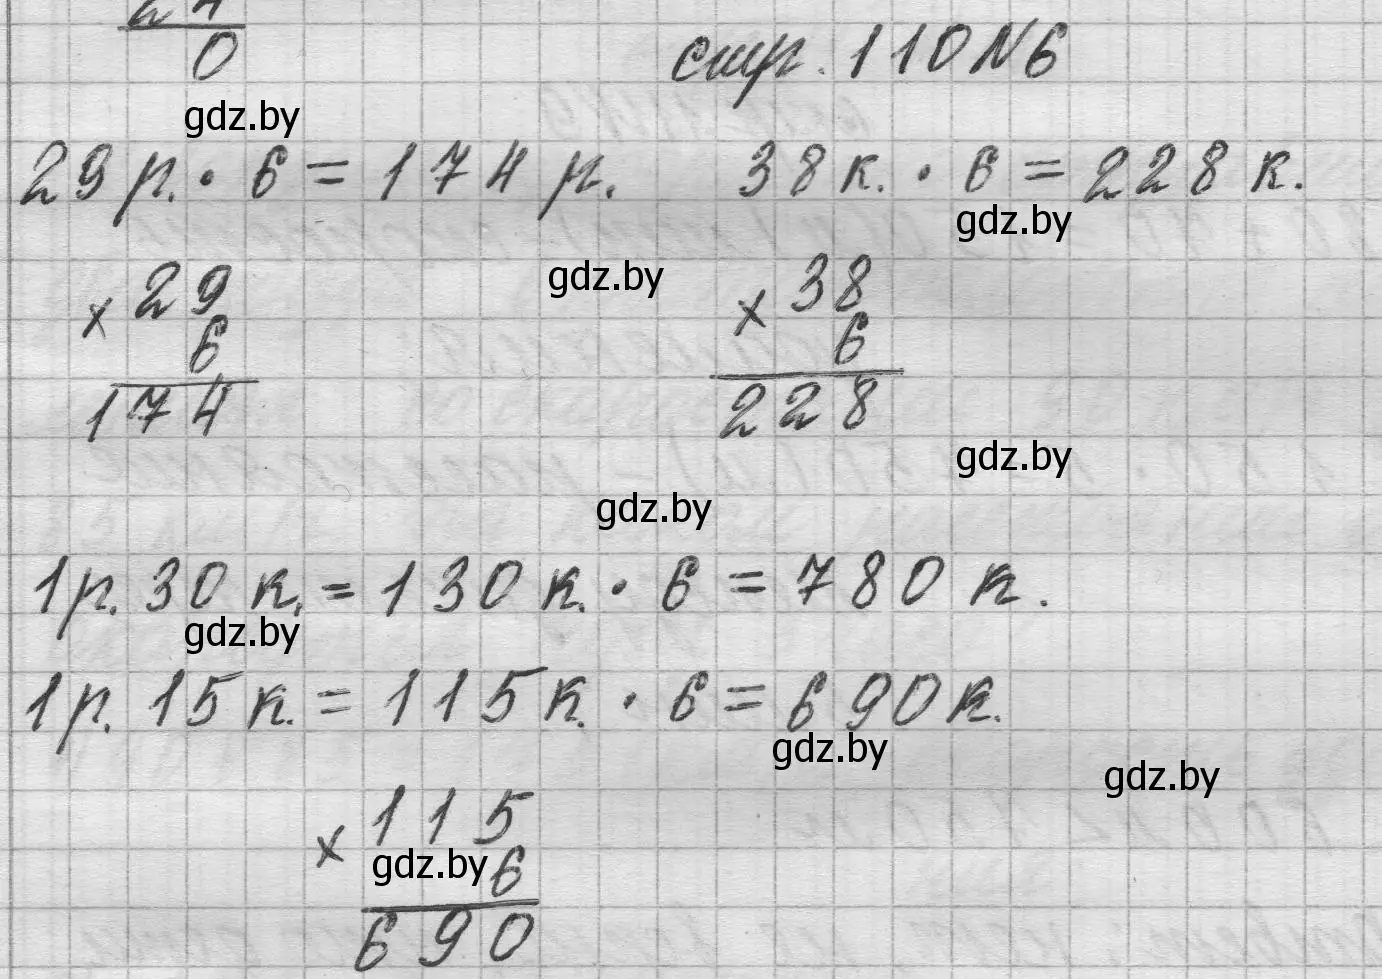 24
0
стр. 110 N6
gdz.by
29 р. · 6 = 174 р. 38 к. · 6 = 228 к.
gdz.by
gdz.by
× 29 × 38
6 6
174 228
gdz.by
gdz.by
1 р. 30 к. = 130 к. · 6 = 780 к.
gdz.by
1 р. 15 к. = 115 к. · 6 = 690 к.
gdz.by
gdz.by
× 115
gdz.by 6
690